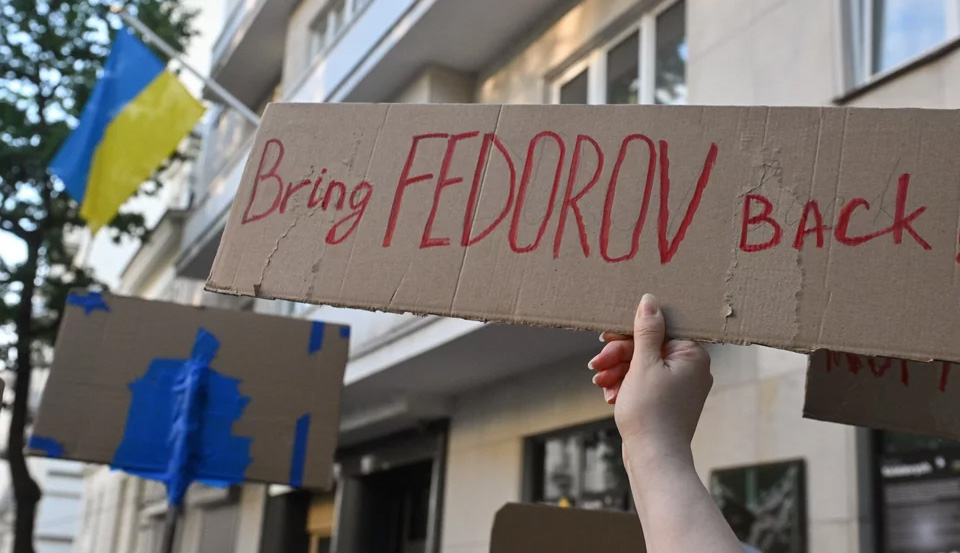 Bring FEDOROV BACK!